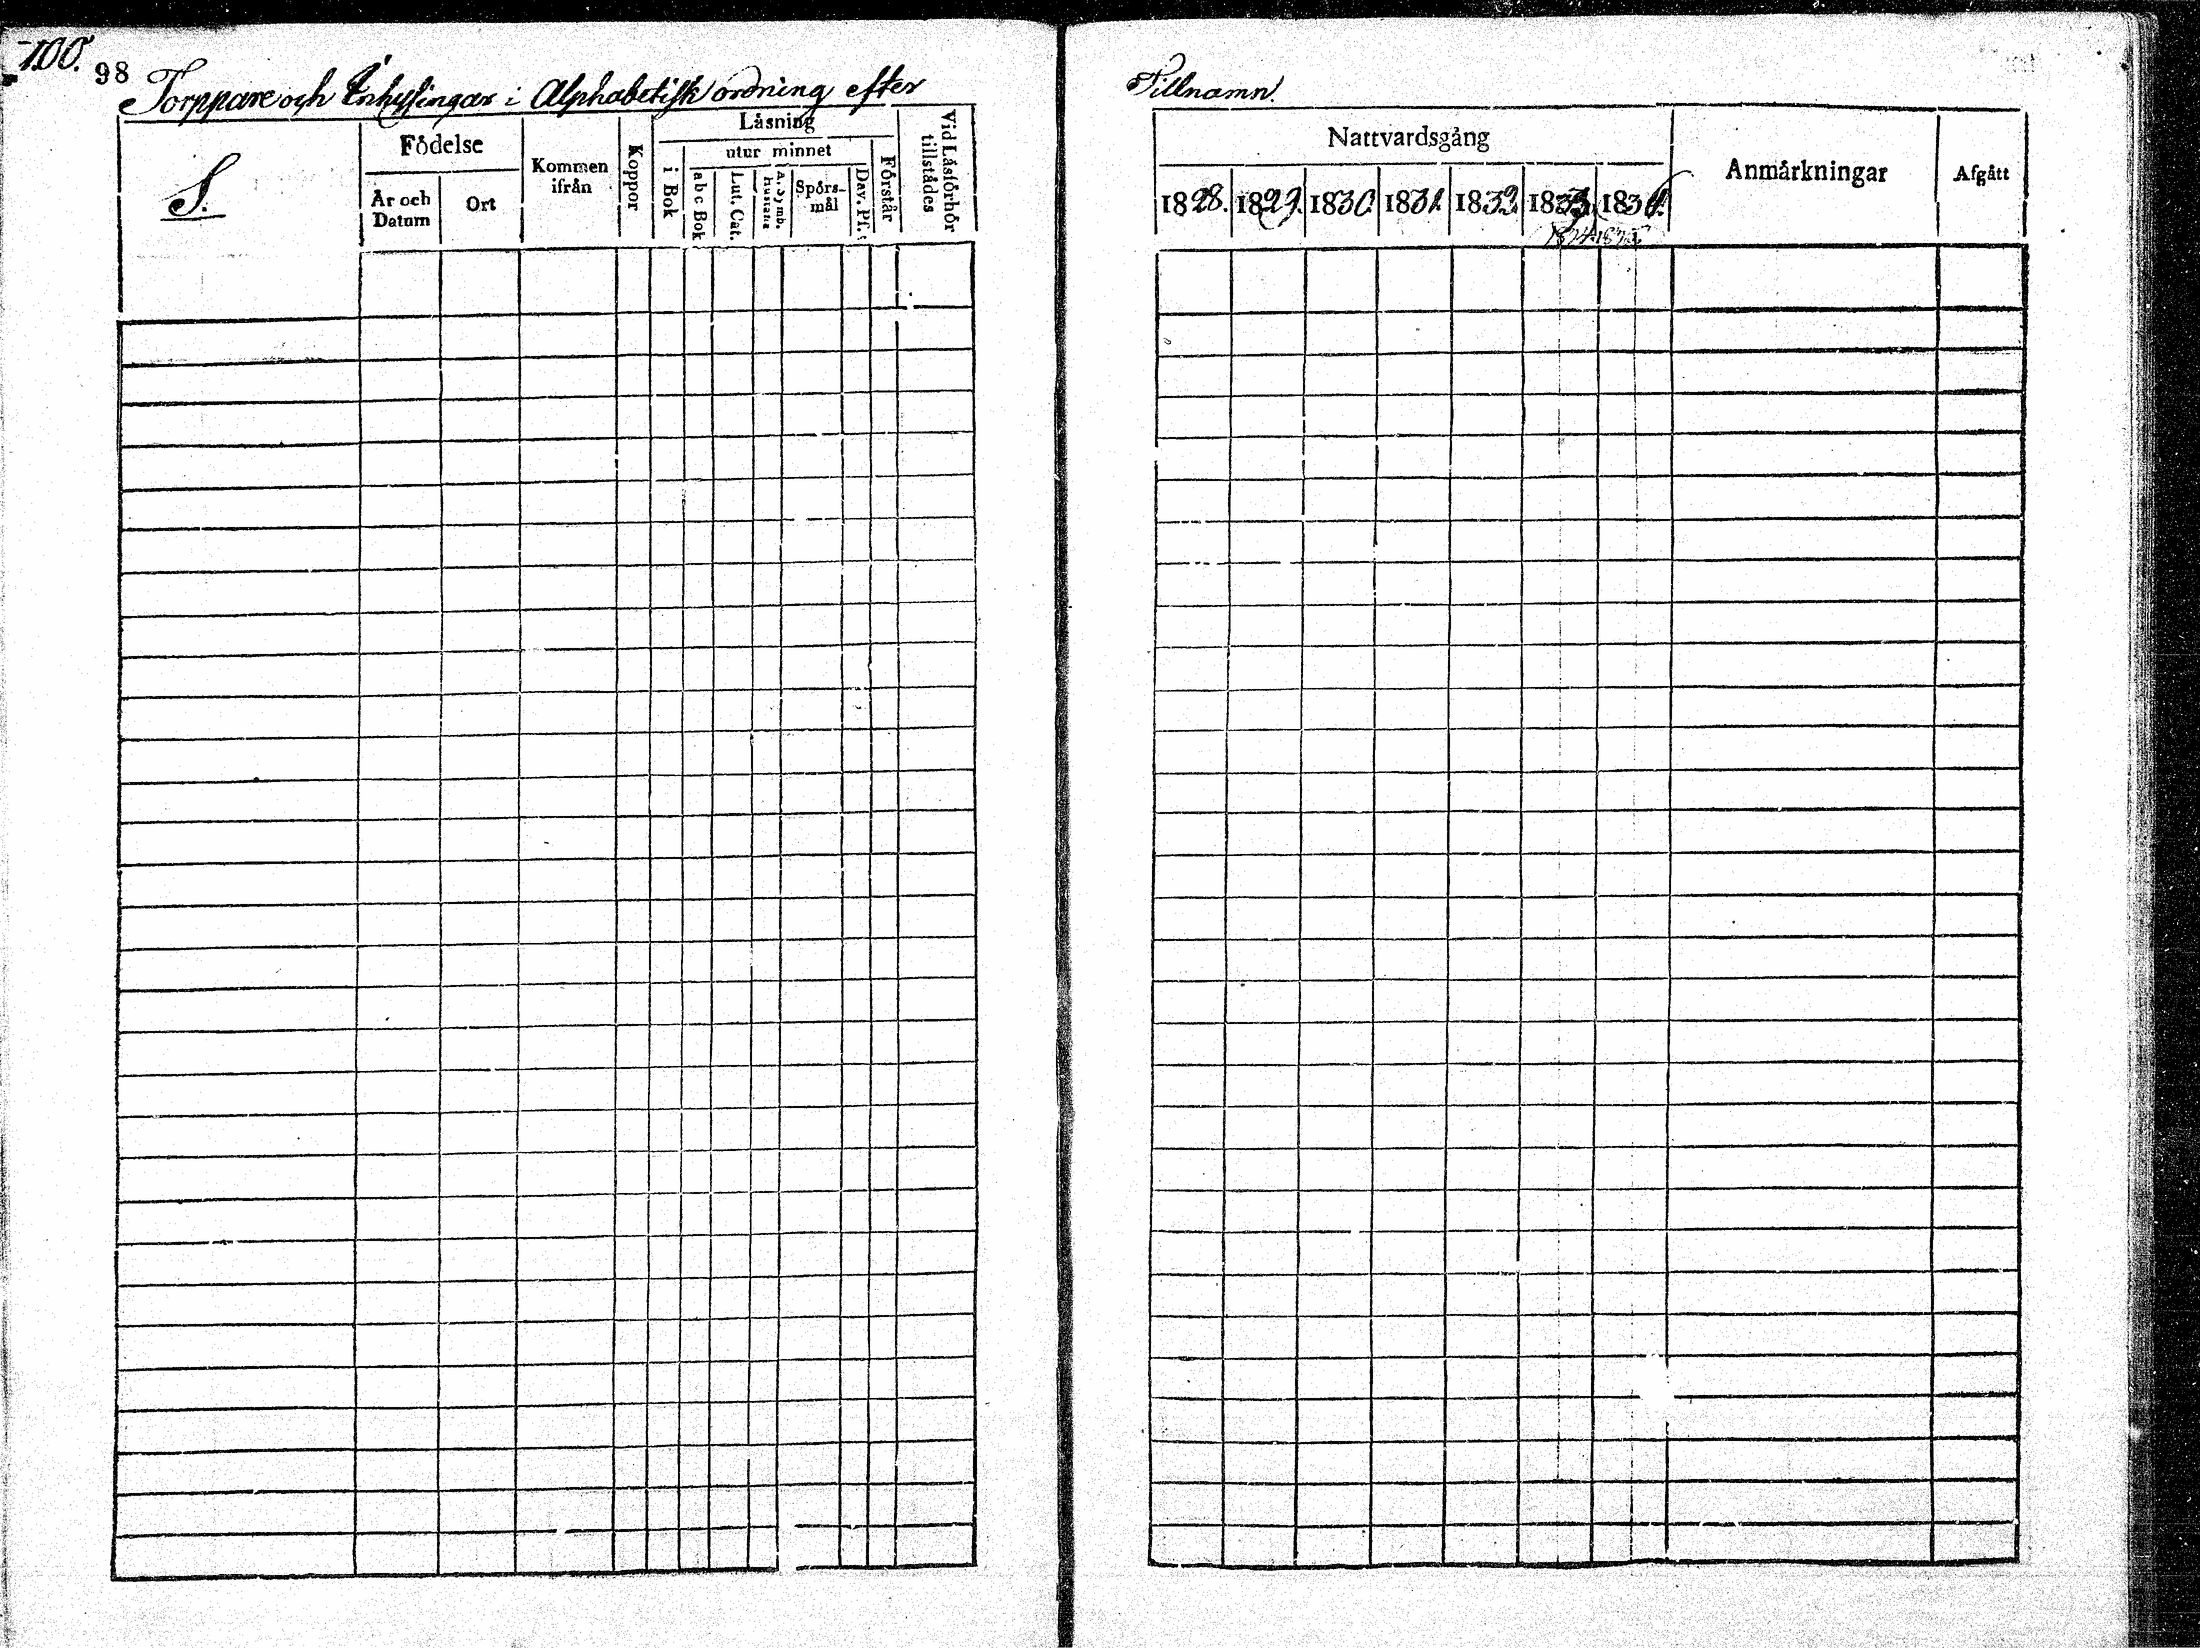 100.
98
Torppare och Inhysingar i Alphabetisk ordning efter Tillnamn.
S.
Födelse
År och Datum
Ort
Kommen ifrån
Koppor
Läsning
i Bok
utur minnet
a b c Bok
Lut. Cat.
A. Symb.
Spörs-
mål
Dav. Ps.
Förstår
Vid Läsförhör tillstädes
Nattvardsgång
1828. 1829. 1830. 1831. 1832. 1833.
Anmärkningar
Afgått